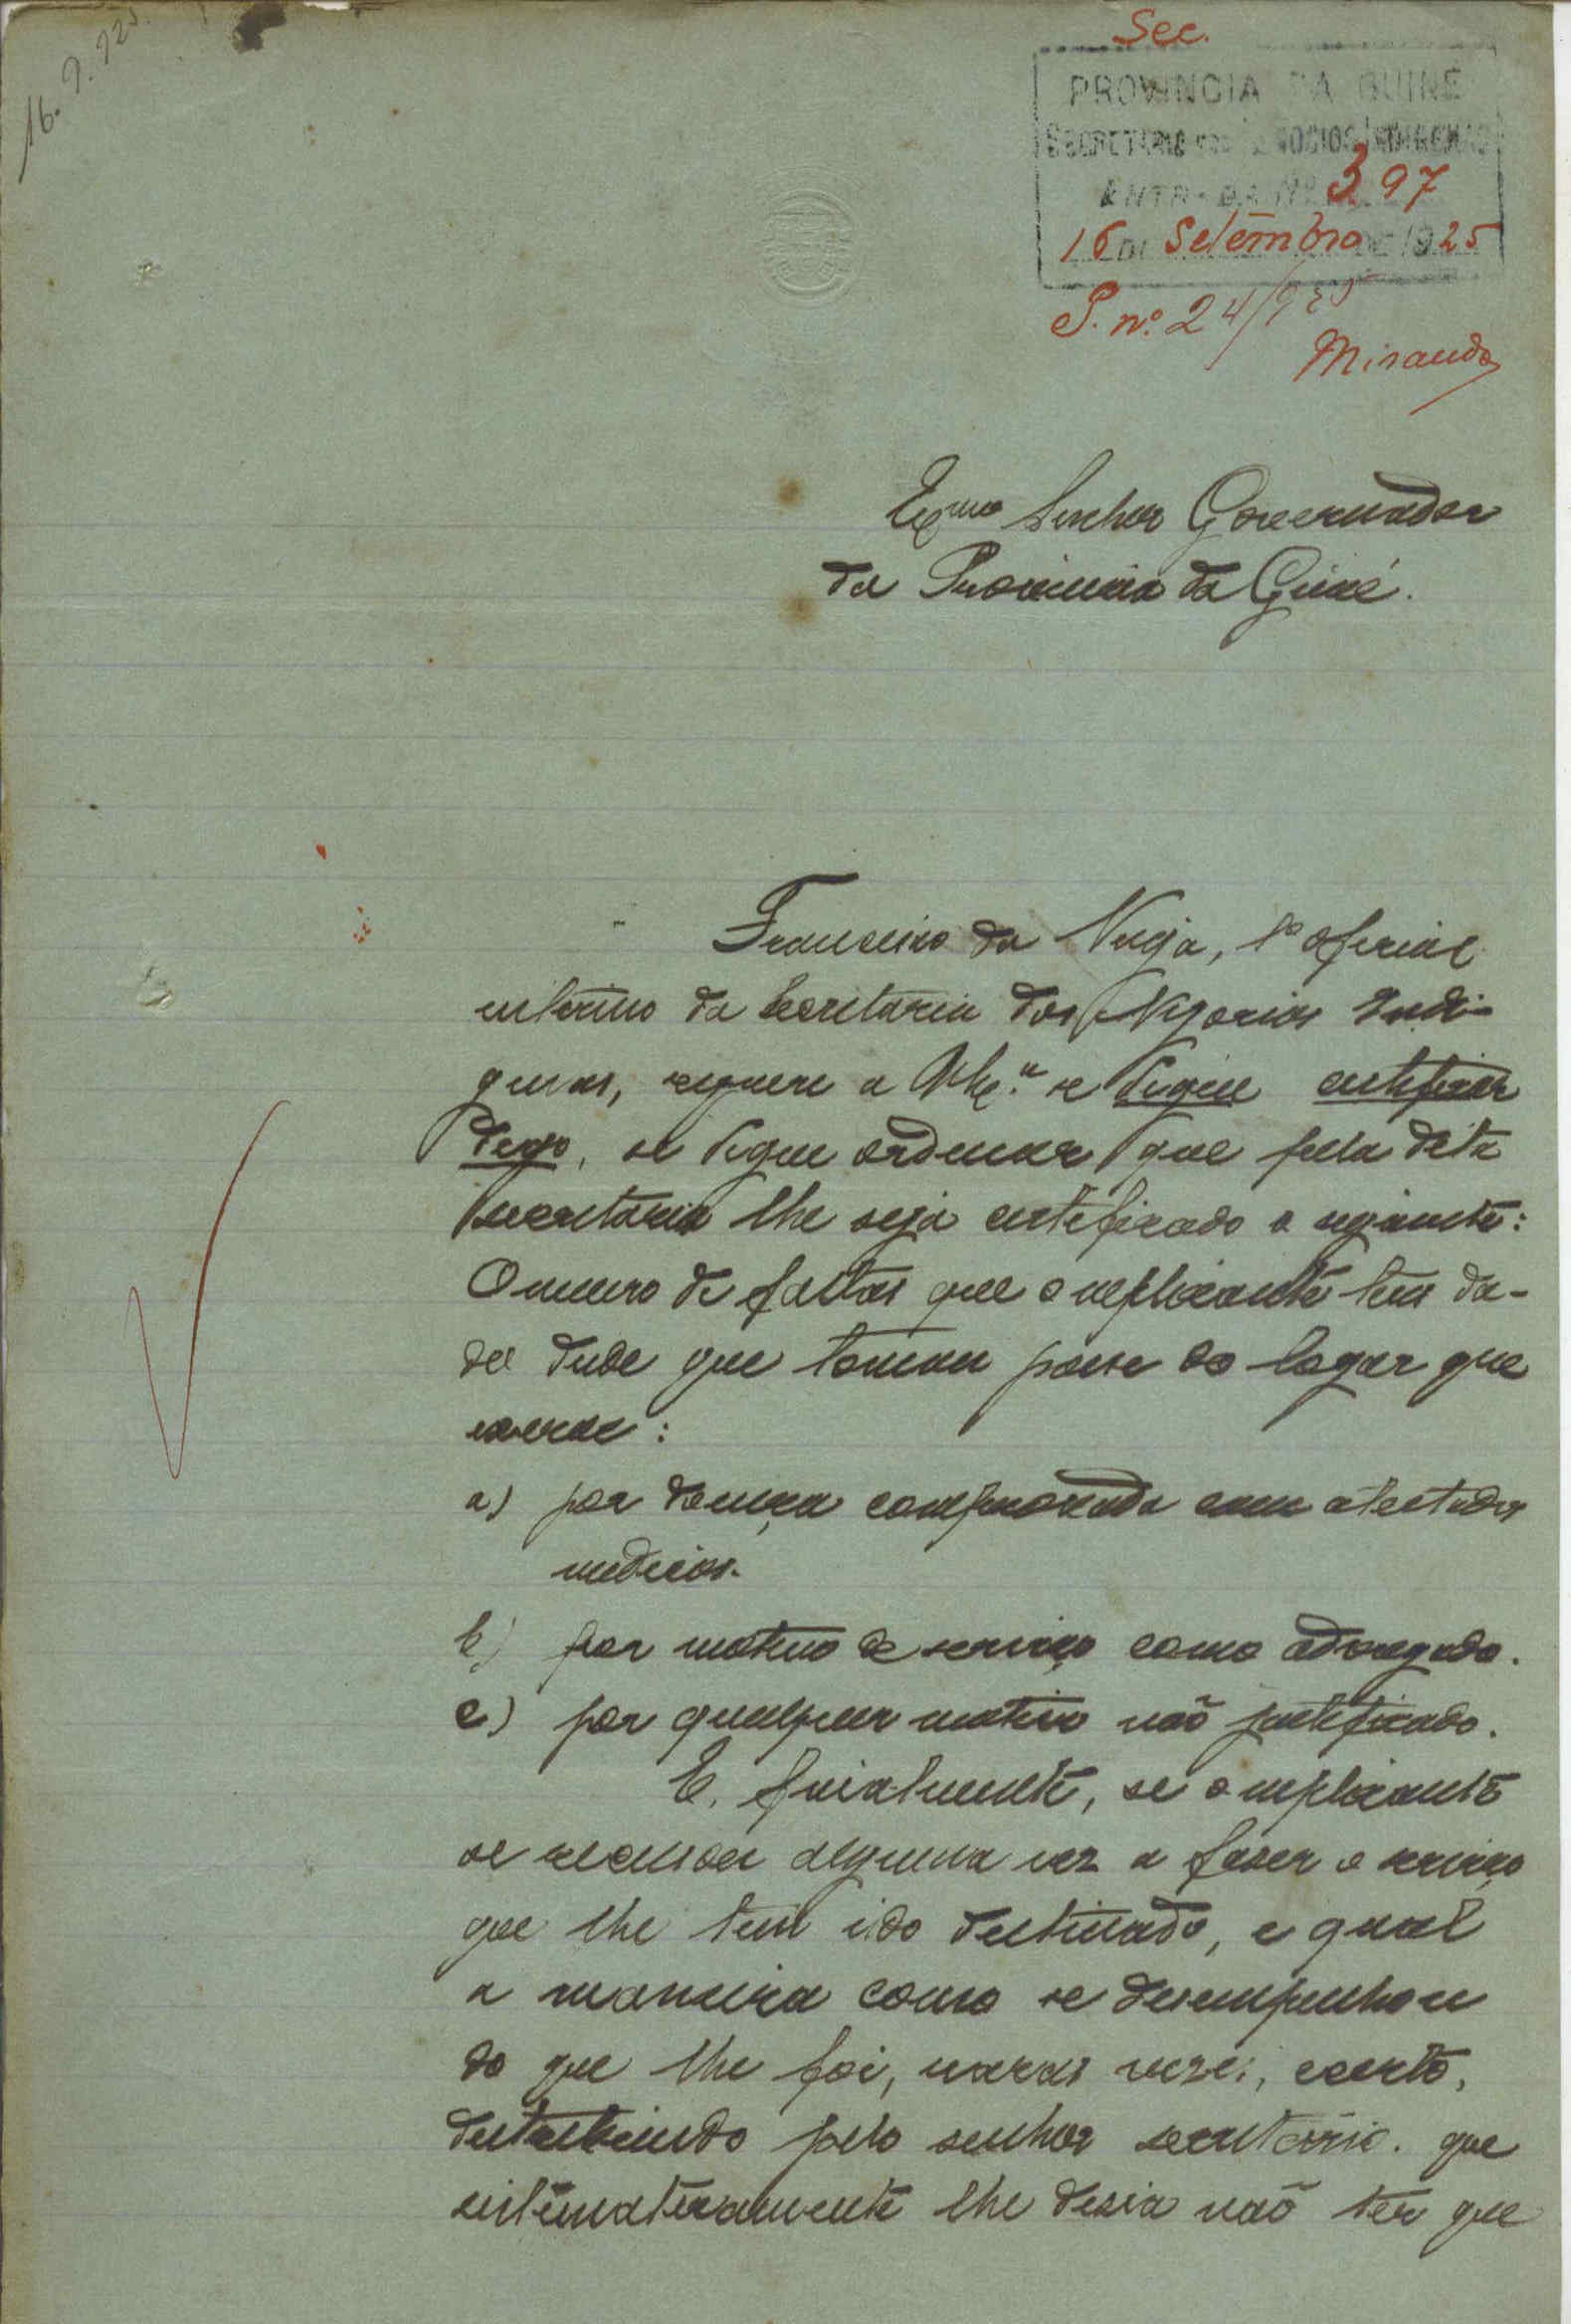 16.9.925
Sec.
PROVINCIA DA GUINÉ
SECRETARIA DOS NEGOCIOS INDIGENAS
ENTRADA Nº 397
16 DE Setembro DE 1925
P. nº 24/925
Miranda
Exmo Senhor Governador
da Provincia da Guiné.
Francisco da Veiga, 1º oficial
interino da Secretaria dos Negocios Indi-
genas, requere a V. Exª se digne certificar
digo, se digne ordenar que pela dita
secretaria lhe seja certificado o seguinte:
O numero de faltas que o suplicante tem da-
do desde que tomou posse do logar que
exerce:
a) por doença comprovada com atestados
medicos.
b) por motivo de serviço como advogado.
c) por qualquer motivo não justificado.
E, finalmente, se o suplicante
se recusou alguma vez a faser o serviço
que lhe tem sido destinado, e qual
a maneira como se desempenhou
do que lhe foi, raras vezes, certo,
distribuido pelo senhor secretário. que
sistematicamente lhe desia não ter que